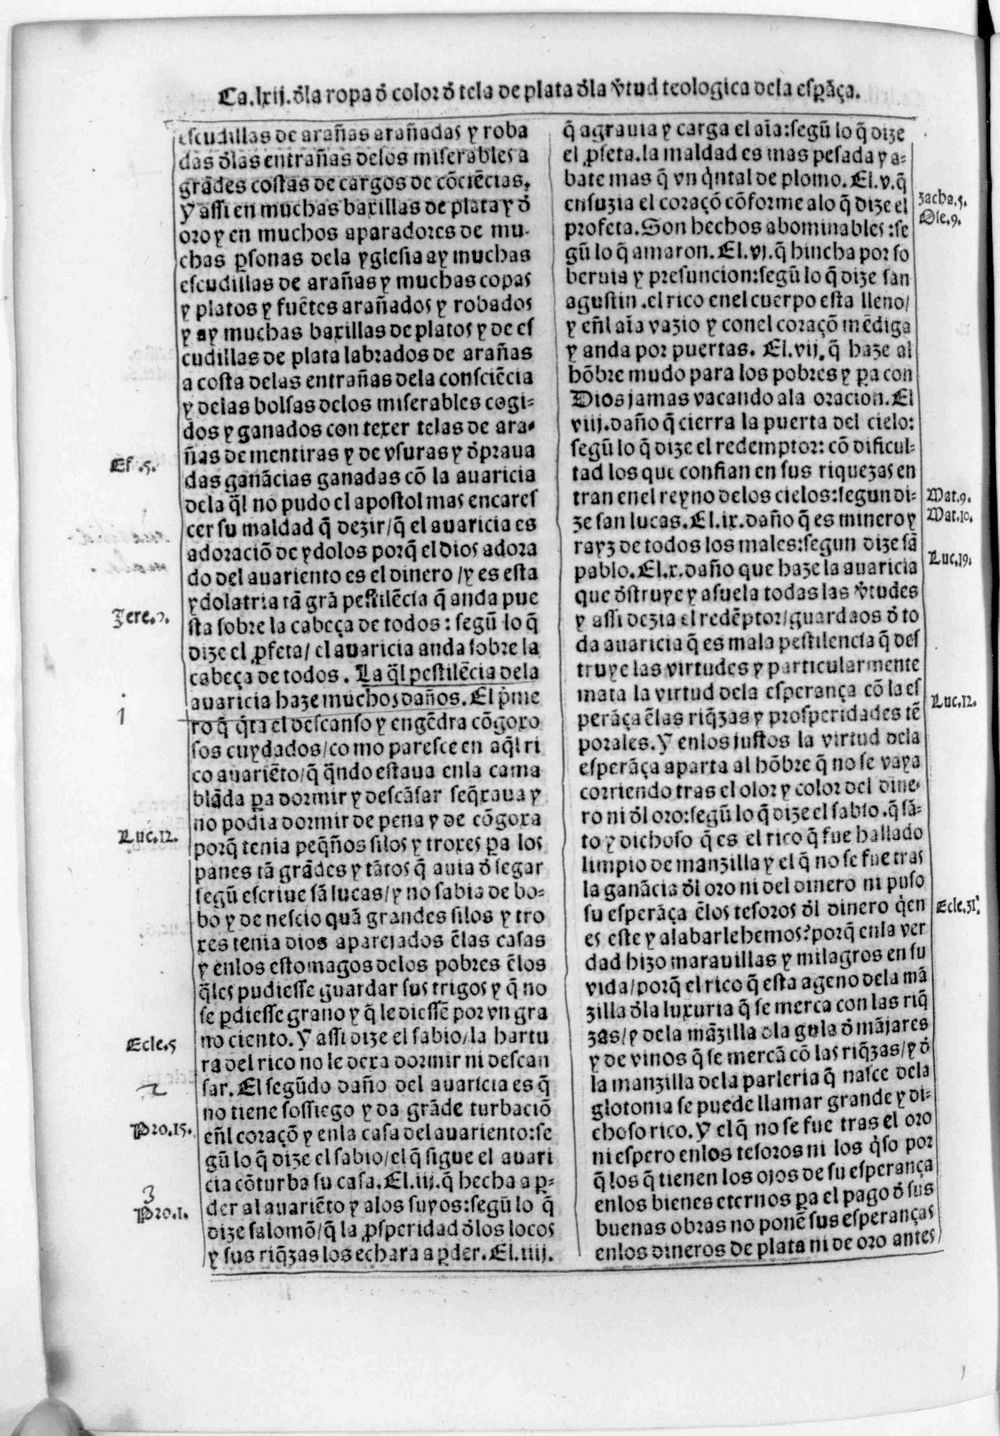 Ca.lxij.ďla ropa ď color ď tela de plata ďla v̄tud teologica dela esp̄ãça.
escudillas de arañas arañadas y roba
das ďlas entrañas delos miserables a
grãdes costas de cargos de cõciẽcias,
Y assi en muchas baxillas de plata y ď
oro y en muchos aparadores de mu-
chas ꝑsonas dela yglesia ay muchas
escudillas de arañas y muchas copas
y platos y fuẽtes arañados y robados
y ay muchas baxillas de platos y de es
cudillas de plata labrados de arañas
a costa delas entrañas dela consciẽcia
y delas bolsas delos miserables cogi-
dos y ganados con texer telas de ara-
ñas de mentiras y de vsuras y ďpraua
das ganãcias ganadas cõ la auaricia
dela q̃l no pudo el apostol mas encares
cer su maldad q̃ dezir/q̃ el auaricia es
adoraciõ de ydolos porq̃ el dios adora
do del auariento es el dinero /y es esta
ydolatria tã grã pestilẽcia q̃ anda pue
sta sobre la cabeça de todos : segũ lo q̃
dize el ꝓfeta/ el auaricia anda sobre la
cabeça de todos . La q̃l pestilẽcia dela
auaricia haze muchos daños. El p̃me
ro q̃ q̃ta el descanso y engẽdra cõgoxo
sos cuydados/como paresce en aq̃l ri
co auariẽto/q̃ q̃ndo estaua enla cama
blãda ꝑa dormir y descãsar seq̃xaua y
no podia dormir de pena y de cõgoxa
porq̃ tenia peq̃ños silos y troxes ꝑa los
panes tã grãdes y tãtos q̃ auia ď segar
segũ escriue sã lucas/y no sabia de bo-
bo y de nescio quã grandes silos y tro
xes tenia dios aparejados ẽlas casas
y enlos estomagos delos pobres ẽlos
q̃les pudiesse guardar sus trigos y q̃ no
se ꝑdiesse grano y q̃ le diessẽ por vn gra
no ciento. Y assi dize el sabio/la hartu
ra del rico no le dexa dormir ni descan
sar. El segũdo daño del auaricia es q̃
no tiene sossiego y da grãde turbaciõ
eñl coraçõ y enla casa del auariento:se
gũ lo q̃ dize el sabio/el q̃ sigue el auari
cia cõturba su casa. El.iij.q̃ hecha a ꝑ-
der al auariẽto y alos suyos:segũ lo q̃
dize salomõ/q̃ la ꝓsperidad ďlos locos
y sus riq̃zas los echara a ꝑder. El.iiij.
Ef.5.
Jere.9.
1
Luc.12.
Ecle.5
2
Pro.15.
3
Pro.1.
q̃ agrauia y carga el aĩa:segũ lo q̃ dize
el ꝓfeta.la maldad es mas pesada y a-
bate mas q̃ vn q̃ntal de plomo. El.v.q̃
ensuzia el coraçõ cõforme alo q̃ dize el
profeta. Son hechos abominables :se
gũ lo q̃ amaron. El.vj.q̃ hincha por so
beruia y presuncion:segũ lo q̃ dize san
agustin .el rico enel cuerpo esta lleno/
y eñl aĩa vazio y conel coraçõ mẽdiga
y anda por puertas. El.vij.q̃ haze al
hõbre mudo para los pobres y ꝑa con
Dios jamas vacando ala oracion. El
viij.daño q̃ cierra la puerta del cielo:
segũ lo q̃ dize el redemptor: cõ dificul-
tad los que confian en sus riquezas en
tran enel reyno delos cielos:segun di-
ze san lucas. El.ix.daño q̃ es minero y
rayz de todos los males:segun dize sã
pablo. El.x.daño que haze la auaricia
que ďstruye y asuela todas las v̄tudes
y assi dezia el redẽptor/guardaos ď to
da auaricia q̃ es mala pestilencia q̃ des
truye las virtudes y particularmente
mata la virtud dela esperança cõ la es
perãça ẽlas riq̃zas y prosperidades tẽ
porales. Y enlos justos la virtud dela
esperãça aparta al hõbre q̃ no se vaya
corriendo tras el olor y color del dine-
ro ni ďl oro:segũ lo q̃ dize el sabio.q̃ sã-
to y dichoso q̃ es el rico q̃ fue hallado
limpio de manzilla y el q̃ no se fue tras
la ganãcia ďl oro ni del dinero ni puso
su esperãça ẽlos tesoros ďl dinero q̃en
es este y alabarlehemos?porq̃ enla ver
dad hizo marauillas y milagros en su
vida/porq̃ el rico q̃ esta ageno dela mã
zilla ďla luxuria q̃ se merca con las riq̃
zas/y dela mãzilla ďla gula ď mãjares
y de vinos q̃ se mercã cõ las riq̃zas/y ď
la manzilla dela parleria q̃ nasce dela
glotonia se puede llamar grande y di-
choso rico. Y el q̃ no se fue tras el oro
ni espero enlos tesoros ni los q̃so por
q̃ los q̃ tienen los ojos de su esperança
enlos bienes eternos ꝑa el pago ď sus
buenas obras no ponẽ sus esperanças
enlos dineros de plata ni de oro antes
Zacha.5.
Ose.9.
Mat.9.
Mat.10.
Luc.19.
Luc.12.
Ecle.31.